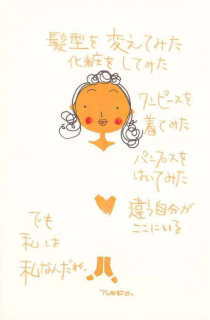 髪型を変えてみた
化粧をしてみた
ワンピースを
着てみた
パンプスを
はいてみた
違う自分が
ここにいる
でも
私は
私なんだわ。